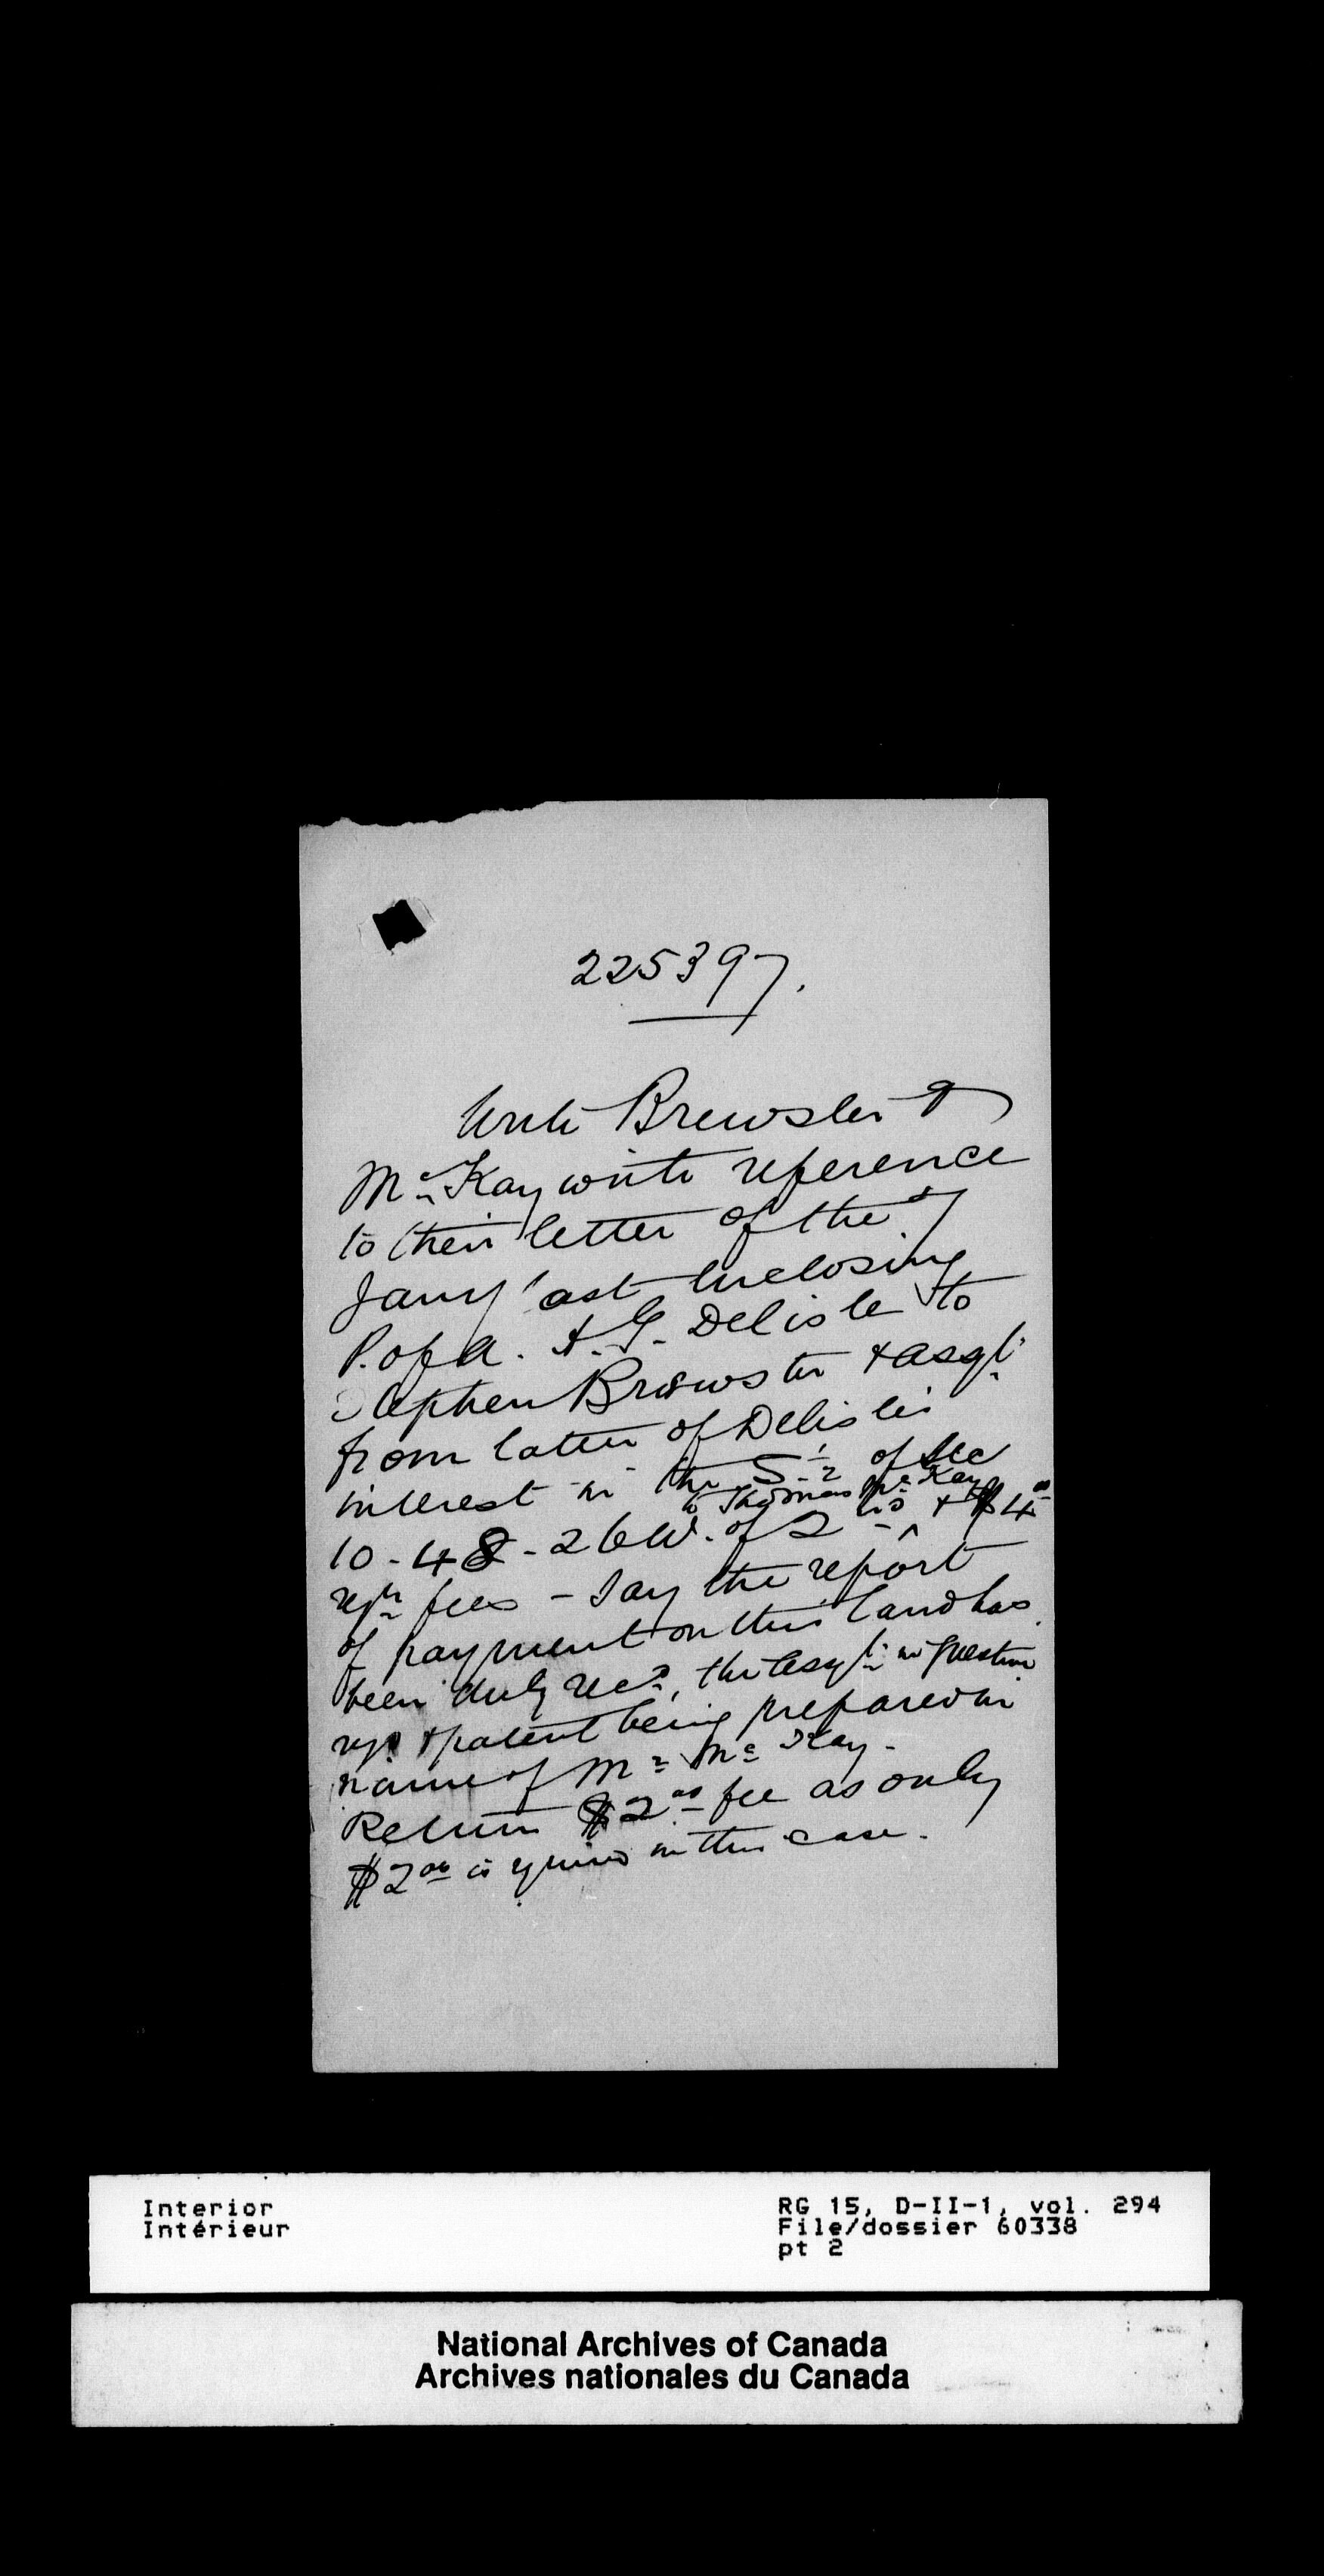 225397.
Write Brewster &
McKay with reference
to their letter of the 7
Jany last enclosing
P. of A. A. G. Delisle to
Stephen Brewster & asgt
from latter of Delisle's
interest in the S. ½ of Sec
to Thomas McKay
10-48-26 W. of 2 & $4 00
regn fees - Say the report
of payment on this land has
been duly recd, the asgt in question
regd & patent being prepared in
name of Mr McKay -
Return $2 00 fee as only
$2 00 is in this case.
Interior
Intérieur
RG 15, D-II-1, vol. 294
File/dossier 60338
pt 2
National Archives of Canada
Archives nationales du Canada